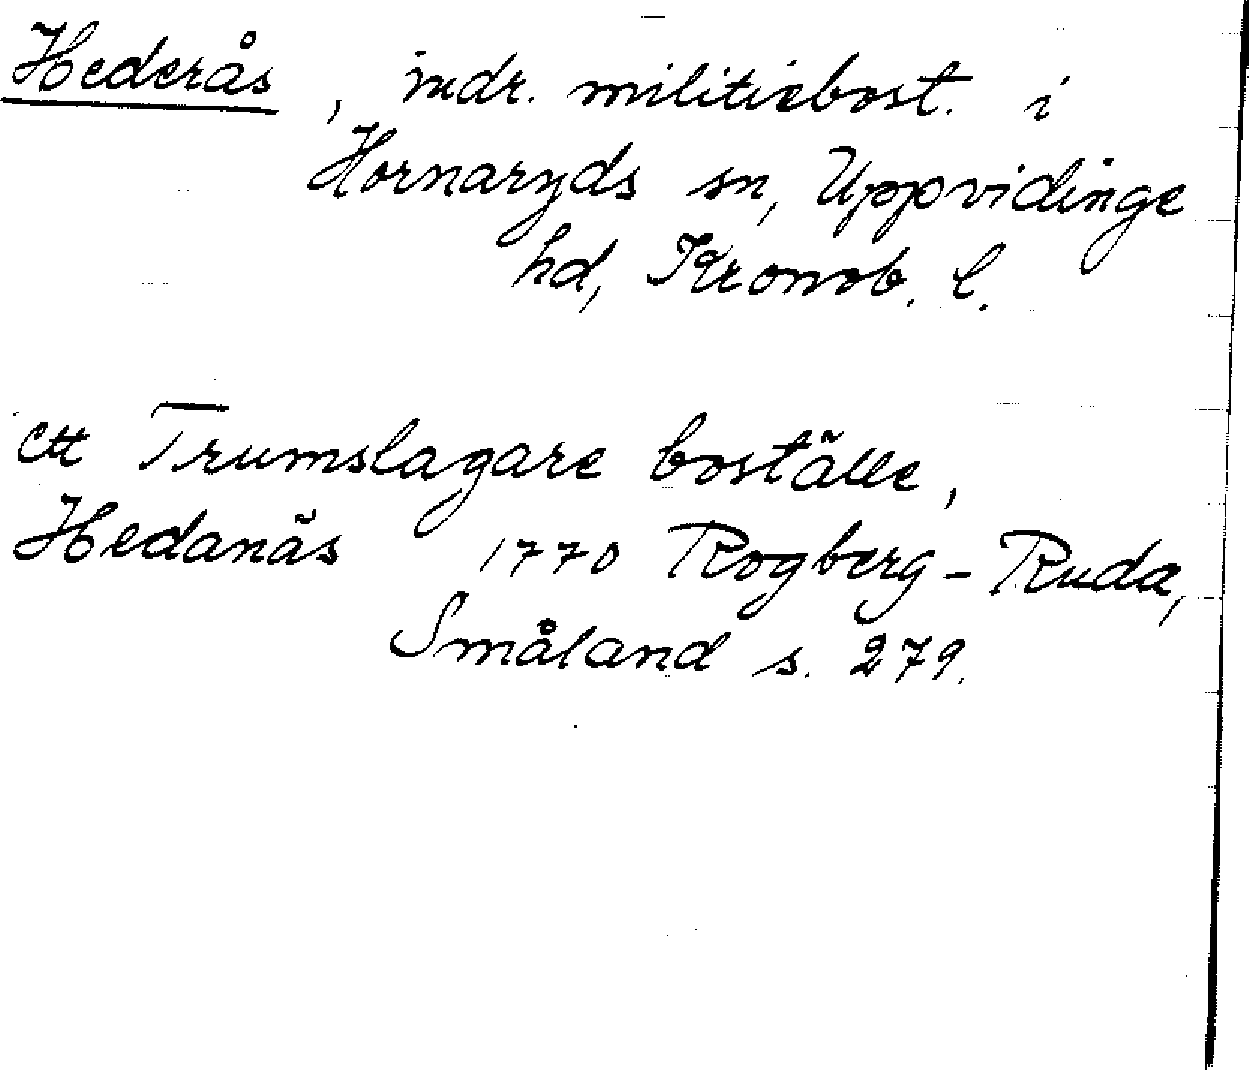 Hederås, indr. militiebost. i
Hornaryds sn, Uppvidinge
hd, Kronob. l.
ett Trumslagare boställe,
Hedanäs 1770 Rogberg-Ruda,
Småland s. 279.